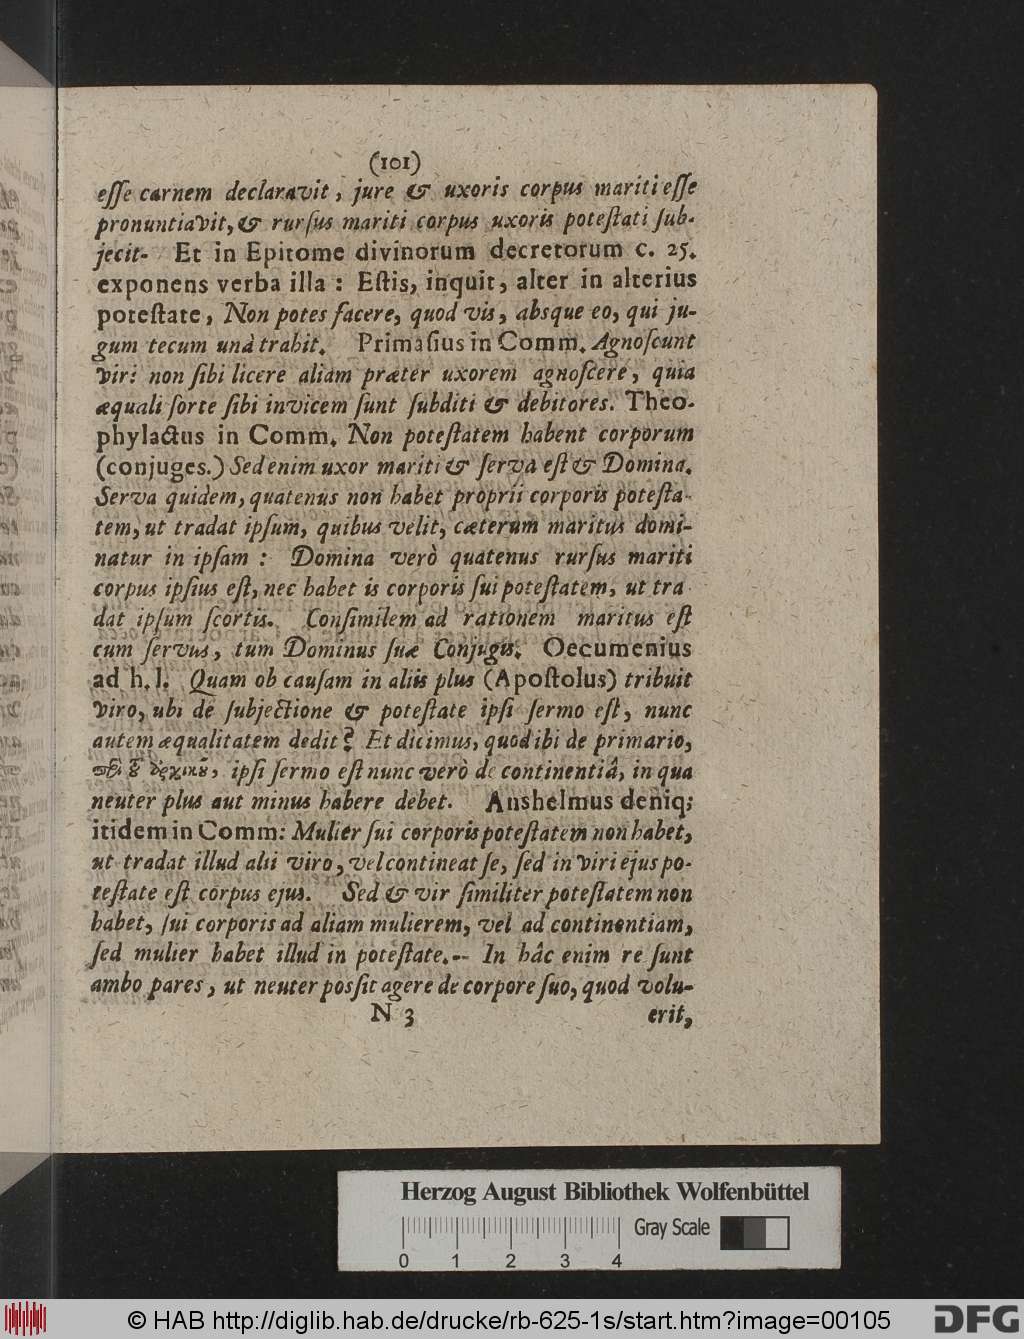 (101)
eſſe carnem declaravit, jure & uxoris corpus mariti eſſe
pronuntiavit, & rurſus mariti corpus uxoris poteſtati ſub-
jecit- Et in Epitome divinorum decretorum c. 25.
exponens verba illa : Eſtis, inquit, alter in alterius
poteſtate, Non potes facere, quod vis, absque eo, qui ju-
gum tecum unà trahit. Primaſius in Comm. Agnoſcunt
viri non ſibi licere aliam præter uxorem agnoſcere, quia
æquali ſorte ſibi invicem ſunt ſubditi & debitores. Theo-
phylactus in Comm. Non poteſtatem habent corporum
(conjuges.) Sed enim uxor mariti & ſerva eſt & Domina.
Serva quidem, quatenus non habet proprii corporis poteſta-
tem, ut tradat ipſum, quibus velit, cæterum maritus domi-
natur in ipſam : Domina verò quatenus rurſus mariti
corpus ipſius eſt, nec habet is corporis ſui poteſtatem, ut tra-
dat ipſum ſcortis. Conſimilem ad rationem maritus eſt
cum ſervus, tum Dominus ſuæ Conjugis. Oecumenius
ad h. l. Quam ob cauſam in aliis plus (Apoſtolus) tribuit
viro, ubi de ſubjectione & poteſtate ipſi ſermo eſt, nunc
autem æqualitatem dedit? Et dicimus, quod ibi de primario,
ἀρχικοῦ, ipſi ſermo eſt nunc verò de continentiâ, in qua
neuter plus aut minus habere debet. Anshelmus deniq;
itidem in Comm: Mulier ſui corporis poteſtatem non habet,
ut tradat illud alii viro, vel contineat ſe, ſed in viri ejus po-
teſtate eſt corpus ejus. Sed & vir ſimiliter poteſtatem non
habet, ſui corporis ad aliam mulierem, vel ad continentiam,
ſed mulier habet illud in poteſtate.-- In hâc enim re ſunt
ambo pares, ut neuter posſit agere de corpore ſuo, quod volu-
N 3 erit,
Herzog August Bibliothek Wolfenbüttel
Gray Scale
0 1 2 3 4
© HAB http://diglib.hab.de/drucke/rb-625-1s/start.htm?image=00105
DFG